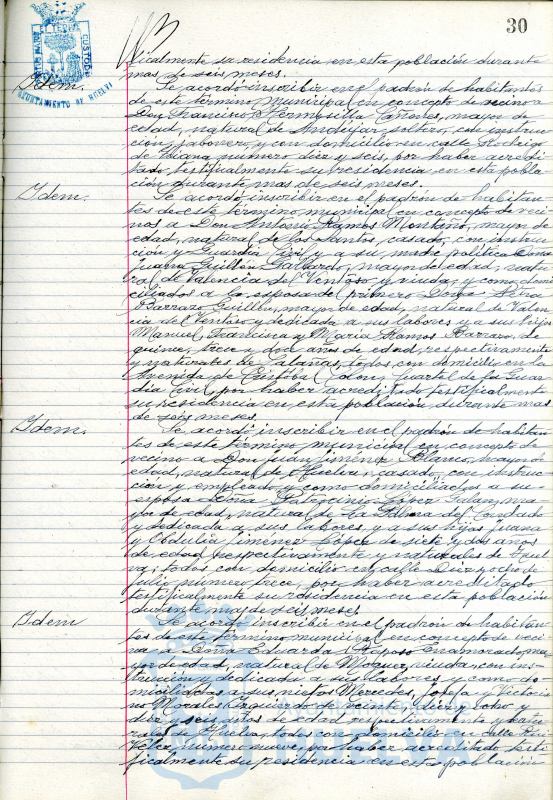 30
CUSTODI
AYUNTAMIENTO DE HUELVA
ficalmente su residencia en esta población durante
mas de seis meses.
Idem.
Se acordó inscribir en el padrón de habitantes
de este término municipal en concepto de vecino a
Don Francisco Hermosilla, mayor de
edad, natural de Andújar, soltero, con instruc-
ción, jabonero, y con domicilio en calle Rodrigo
de Triana número diez y seis, por haber acredi-
tado testificalmente su residencia en esta pobla-
ción durante mas de seis meses.
Idem.
Se acordó inscribir en el padrón de habitan-
tes de este término municipal en concepto de veci-
nos a Don Antonio Ramos Montaño, mayor de
edad, natural de los Santos, casado, con instruc-
ción y Guardia Civil y a su madre política Doña
Juana Guillén Gallardo, mayor de edad, natu-
ral de Valencia del Ventoso y viuda, y como domi-
ciliados a la esposa del primero Doña
Barraso Guillén, mayor de edad, natural de Valen-
cia del Ventoso y dedicada a sus labores y a sus hijos
Manuel, Francisca y María Ramos Barraso, de
quince, trece y dos años de edad, respectivamente
y naturales de Calañas, todos con domicilio en la
Avenida de Cristóbal Colón, Cuartel de la Guar-
dia Civil, por haber acreditado testificalmente
su residencia en esta población, durante mas
de seis meses.
Idem.
Se acordó inscribir en el padrón de habitan-
tes de este término municipal en concepto de
vecino a Don Juan Jiménez Blanco, mayor de
edad, natural de Huelva, casado, con instruc-
ción y empleado y como domiciliados a su
esposa Doña Patrocinio López, ma-
yor de edad, natural de La Palma del Condado
y dedicada a sus labores, y a sus hijas Juana
y Obdulia Jiménez López de siete y dos años
de edad respectivamente y naturales de Huel-
va; todos con domicilio en calle Diez y ocho de
Julio número trece, por haber acreditado
testificalmente su residencia en esta población
durante mas de seis meses.
Idem
Se acordó inscribir en el padrón de habitan-
tes de este término municipal en concepto de veci-
na a Doña Eduarda Raposo Enamorado, ma-
yor de edad, natural de Moguer, viuda, con ins-
trucción y dedicada a sus labores y como do-
miciliados a sus nietos Mercedes, Josefa y Victoria-
no Morales de veinte, diez y ocho y
diez y seis años de edad respectivamente y natu-
rales de Huelva, todos con domicilio en calle
número nueve, por haber acreditado testi-
ficalmente su residencia en esta población